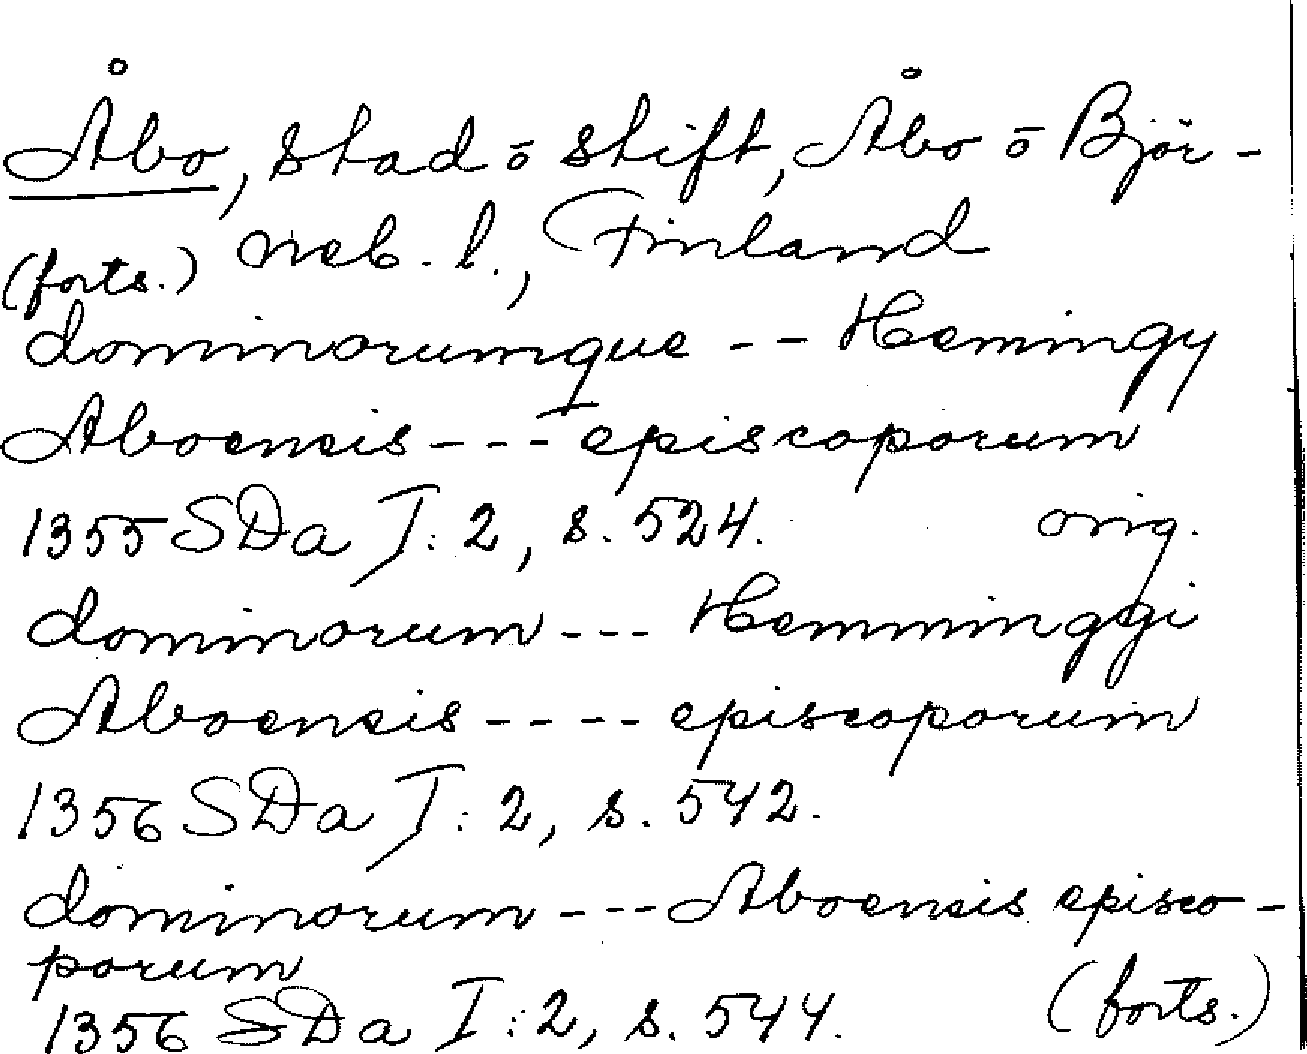 Åbo, stad ō stift, Åbo ō Björ-
(forts.) neb. l., Finland
dominorumque -- Hemingy
Aboensis --- episcoporum
1355 SDa I: 2, s. 524. orig.
dominorum --- Hemminggi
Aboensis ---- episcoporum
1356 SDa I: 2, s. 542.
dominorum --- Aboensis episco-
porum
1356 SDa I: 2, s. 544. (forts.)